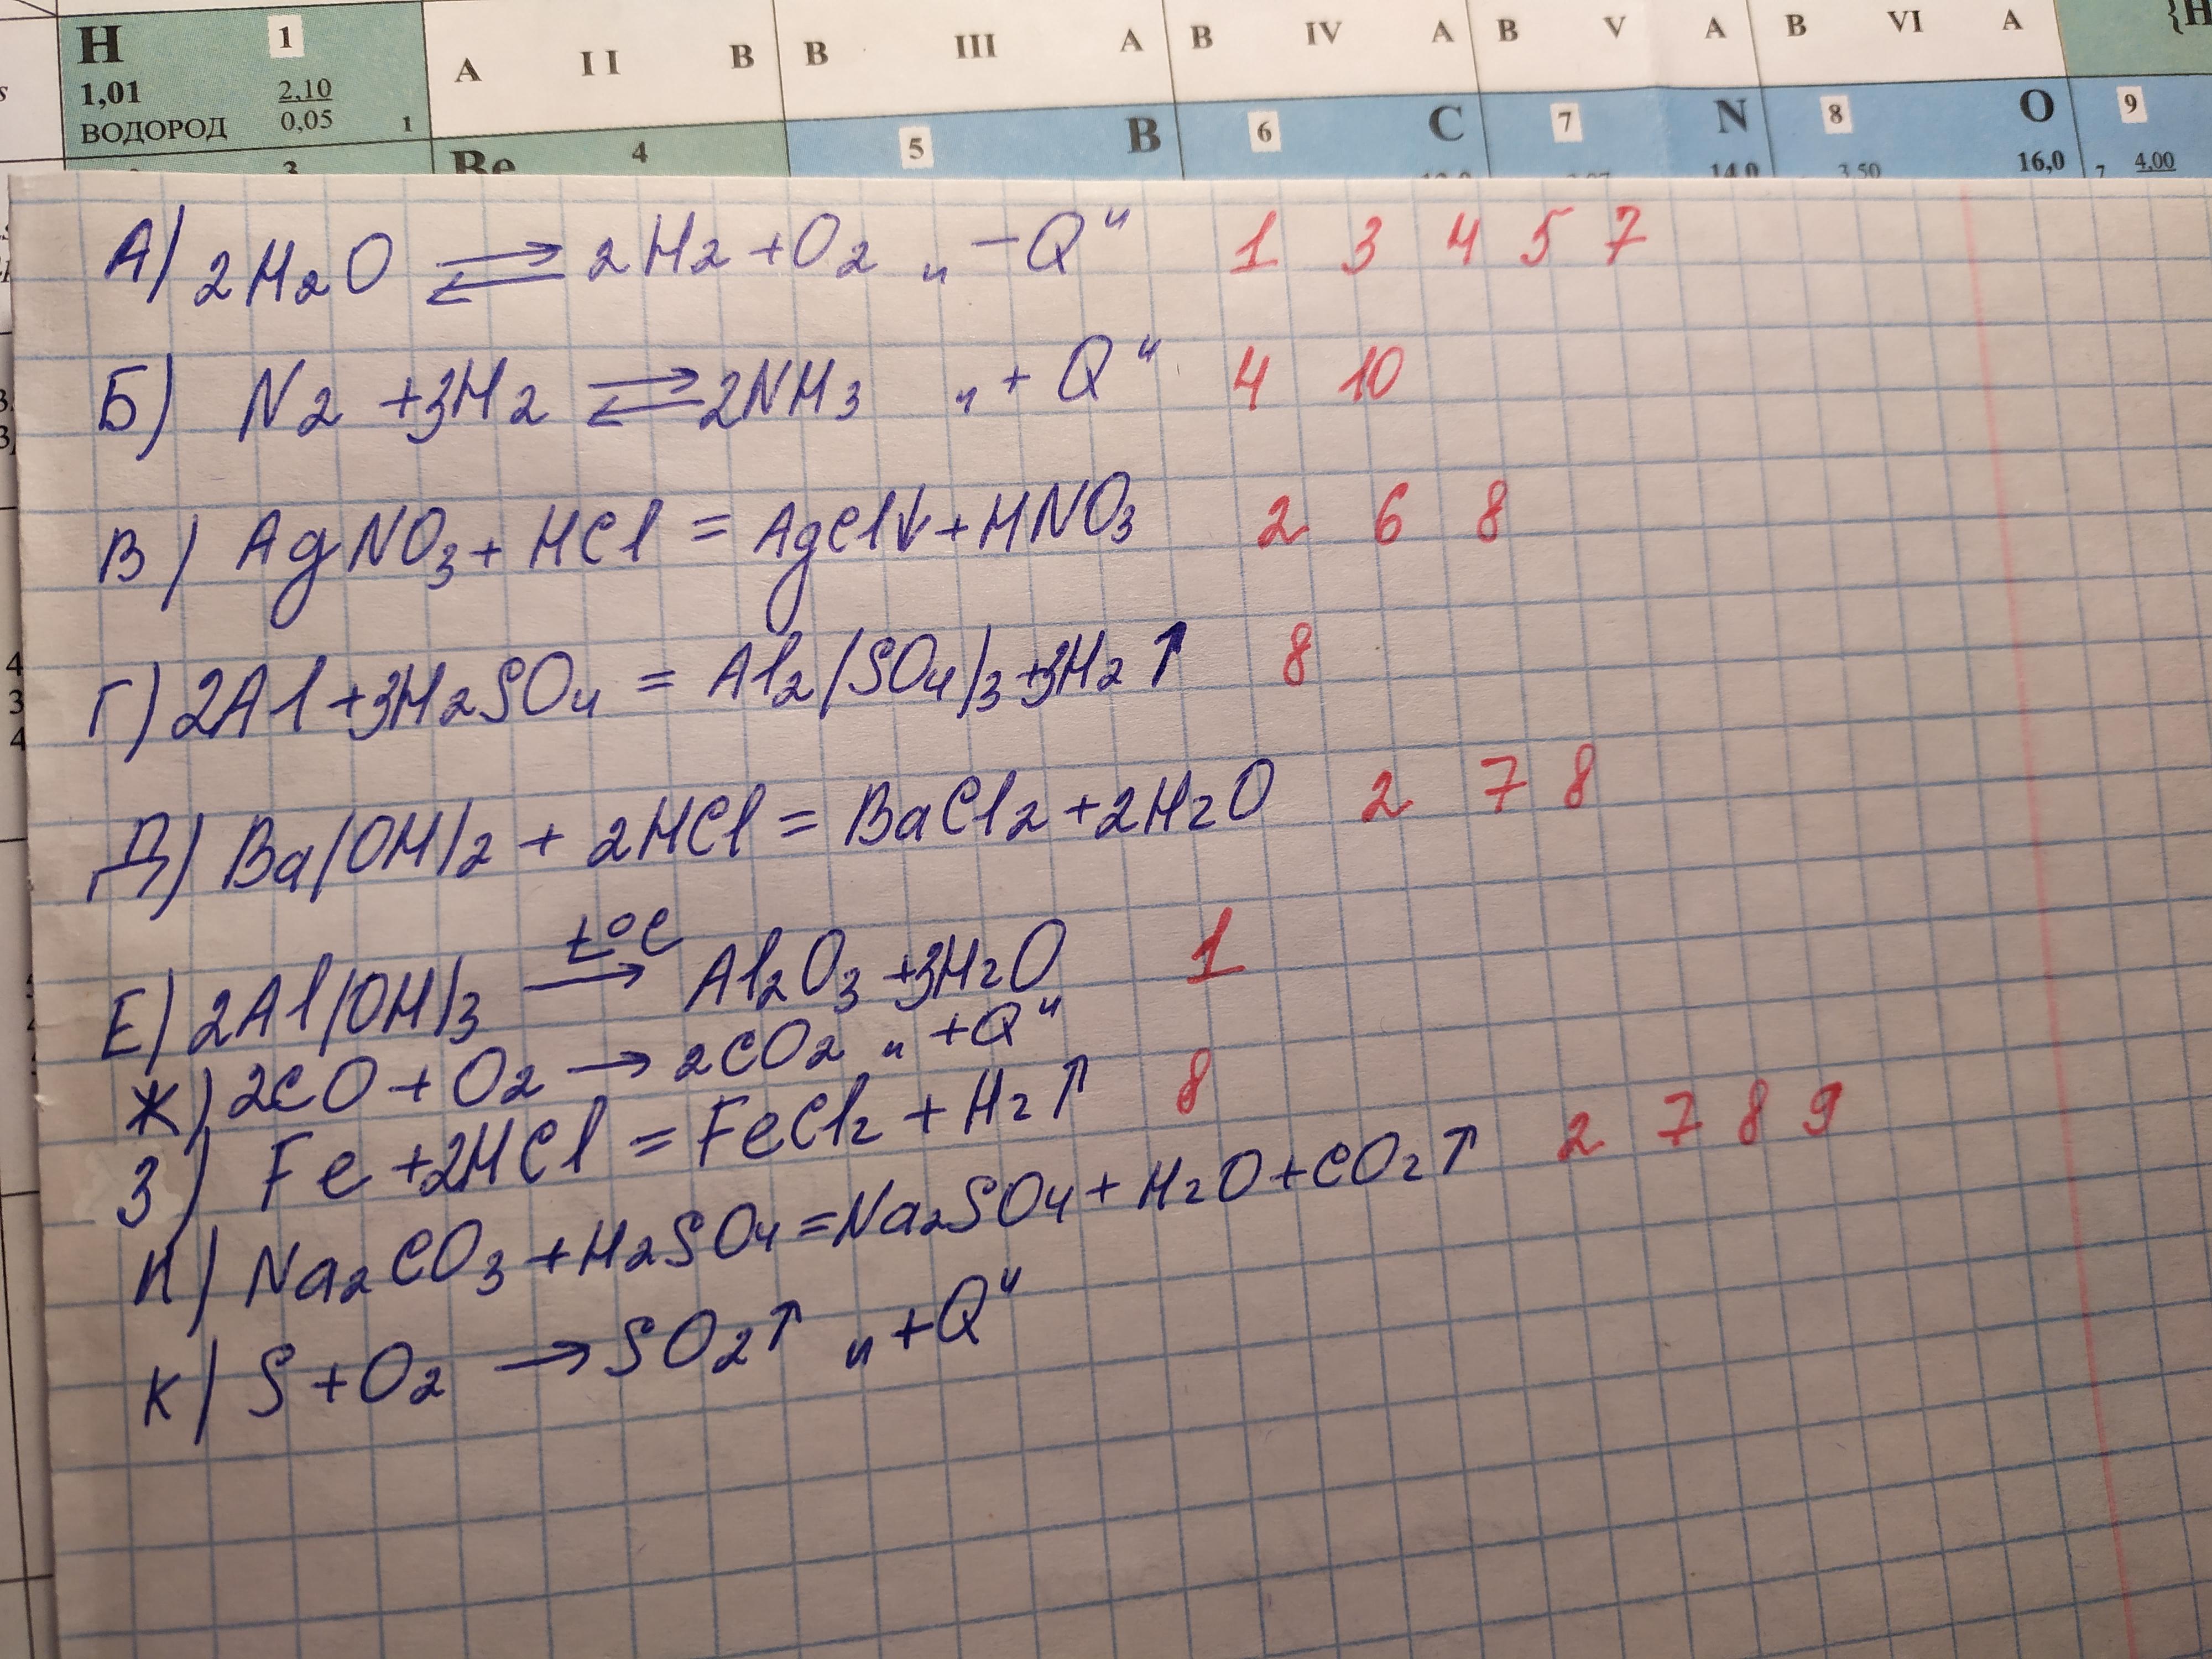 H 1 A II B B III A B IV A B V A B VI A {H
1,01 2,10
ВОДОРОД 0,05 1
Be 4 5 B 6 C 7 N 8 O 9
3 14,0 3,50 16,0 7 4,00
А) 2H2O ⇄ 2H2 + O2 „ −Q“ 1 3 4 5 7
Б) N2 + 3H2 ⇄ 2NH3 „ + Q“ 4 10
В) AgNO3 + HCl = AgCl↓ + HNO3 2 6 8
Г) 2Al + 3H2SO4 = Al2(SO4)3 + 3H2 ↑ 8
Д) Ba(OH)2 + 2HCl = BaCl2 + 2H2O 2 7 8
t°C
Е) 2Al(OH)3 → Al2O3 + 3H2O 1
Ж) 2CO + O2 → 2CO2 „ +Q“
З) Fe + 2HCl = FeCl2 + H2↑ 8
И) Na2CO3 + H2SO4 = Na2SO4 + H2O + CO2↑ 2 7 8 9
К) S + O2 → SO2↑ „ +Q“